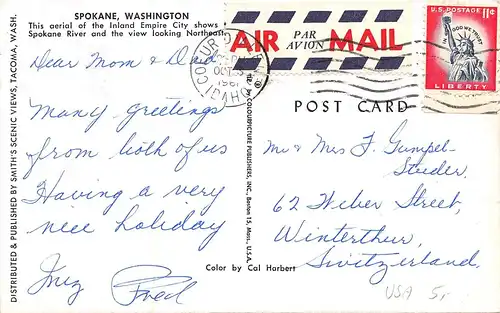 SPOKANE, WASHINGTON
This aerial of the Inland Empire City shows
Spokane River and the view looking Northeast.
Dear Mom & Dad
Many greetings
from both of us
Having a very
nice holiday
Inez Fred
DISTRIBUTED & PUBLISHED BY SMITH'S SCENIC VIEWS, TACOMA, WASH.
by COLOURPICTURE PUBLISHERS, INC., Boston 15, Mass., U.S.A.
Color by Cal Harbert
AIR PAR AVION MAIL
COEUR D'ALENE
OCT
IDAHO
U.S. POSTAGE 11¢
IN GOD WE TRUST
LIBERTY
POST CARD
Mr & Mrs F. Gumpel-
Studer.
62 Weber Street,
Winterthur,
Switzerland.
USA 5,-